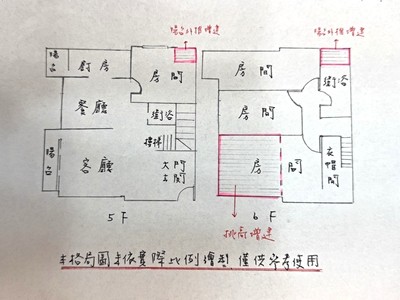 陽台外推增建
陽台外推增建
陽台
廚房
房間
房間
衛浴
餐廳
衛浴
房間
樓梯
陽台
客廳
大門
玄關
房間
衣帽間
5F
6F
挑高增建
本格局圖未依實際比例繪製 僅供參考使用